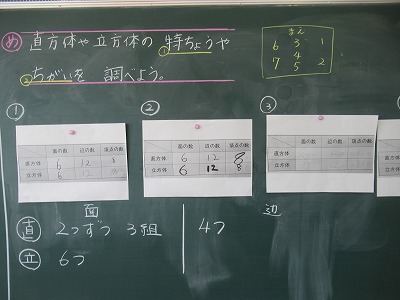 め 直方体や立方体の 特ちょうや
①
ちがいを 調べよう。
②
まえ
6 3 1
4
7 5 2
①
面の数 辺の数 頂点の数
直方体 6 12 8
立方体 6 12 8
②
面の数 辺の数 頂点の数
直方体 6 12 8
立方体 6 12 8
③
面の数 辺の数 頂点の数
直方体
立方体
面
直 2つずつ 3組 4つ
立 6つ
辺